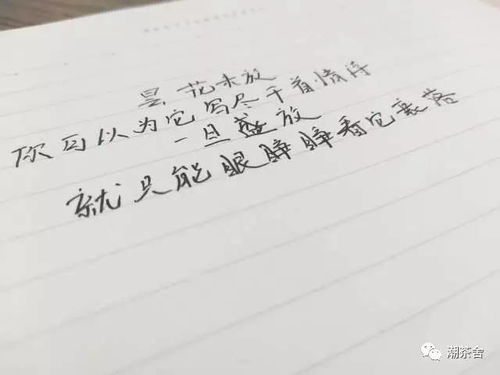 昙花未放
你可以为它写尽千首情诗
一旦盛放
就只能眼睁睁看它衰落
潮茶舍